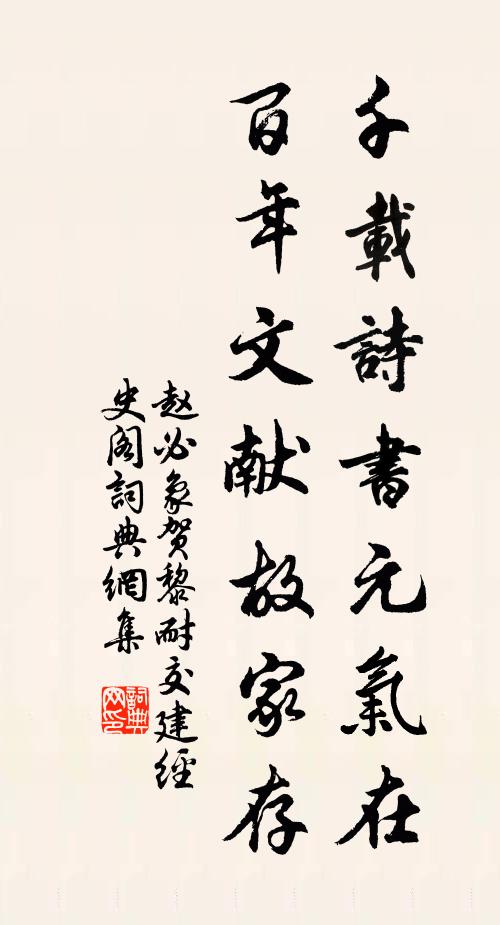 千載詩書元氣在
百年文献故家存
赵必象贺黎耐交建經
史阁詞典網集
詞典
网印